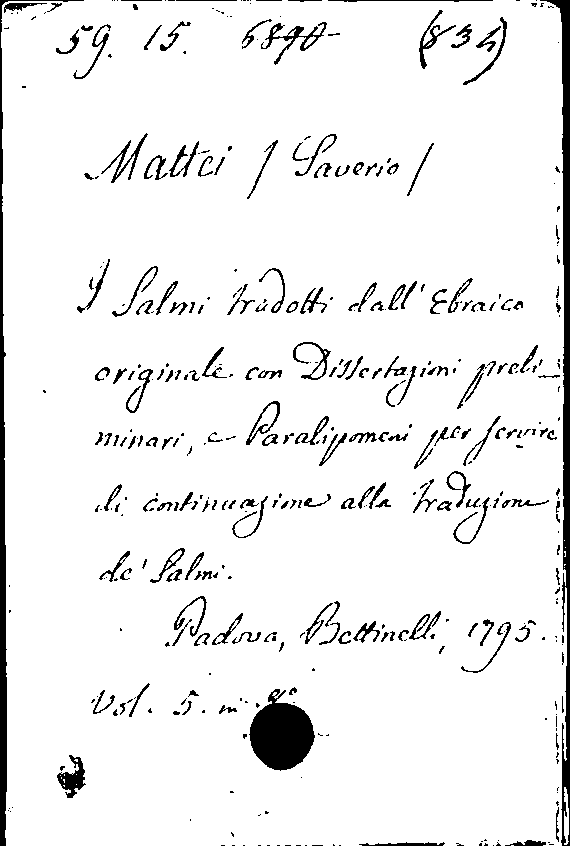 59. 15. 6890 (834)
Mattei / Saverio /
I Salmi tradotti dall' Ebraico
originale con Dissertazioni preli-
minari, e Paralipomeni per servire
di continuazione alla traduzione
de' Salmi.
Padova, Bettinelli, 1795.
Vol. 5. in